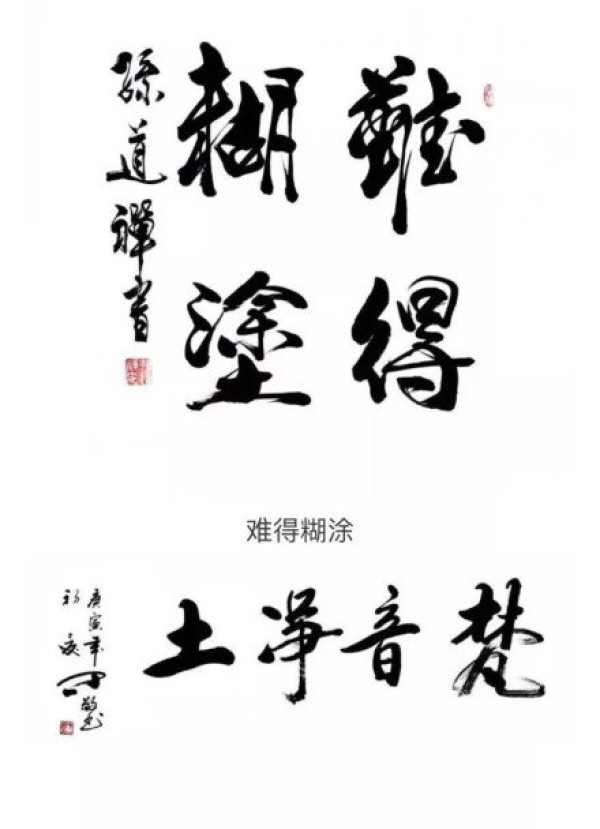 難得
糊塗
孫道禪書
难得糊涂
梵音淨土
庚寅年
初夏